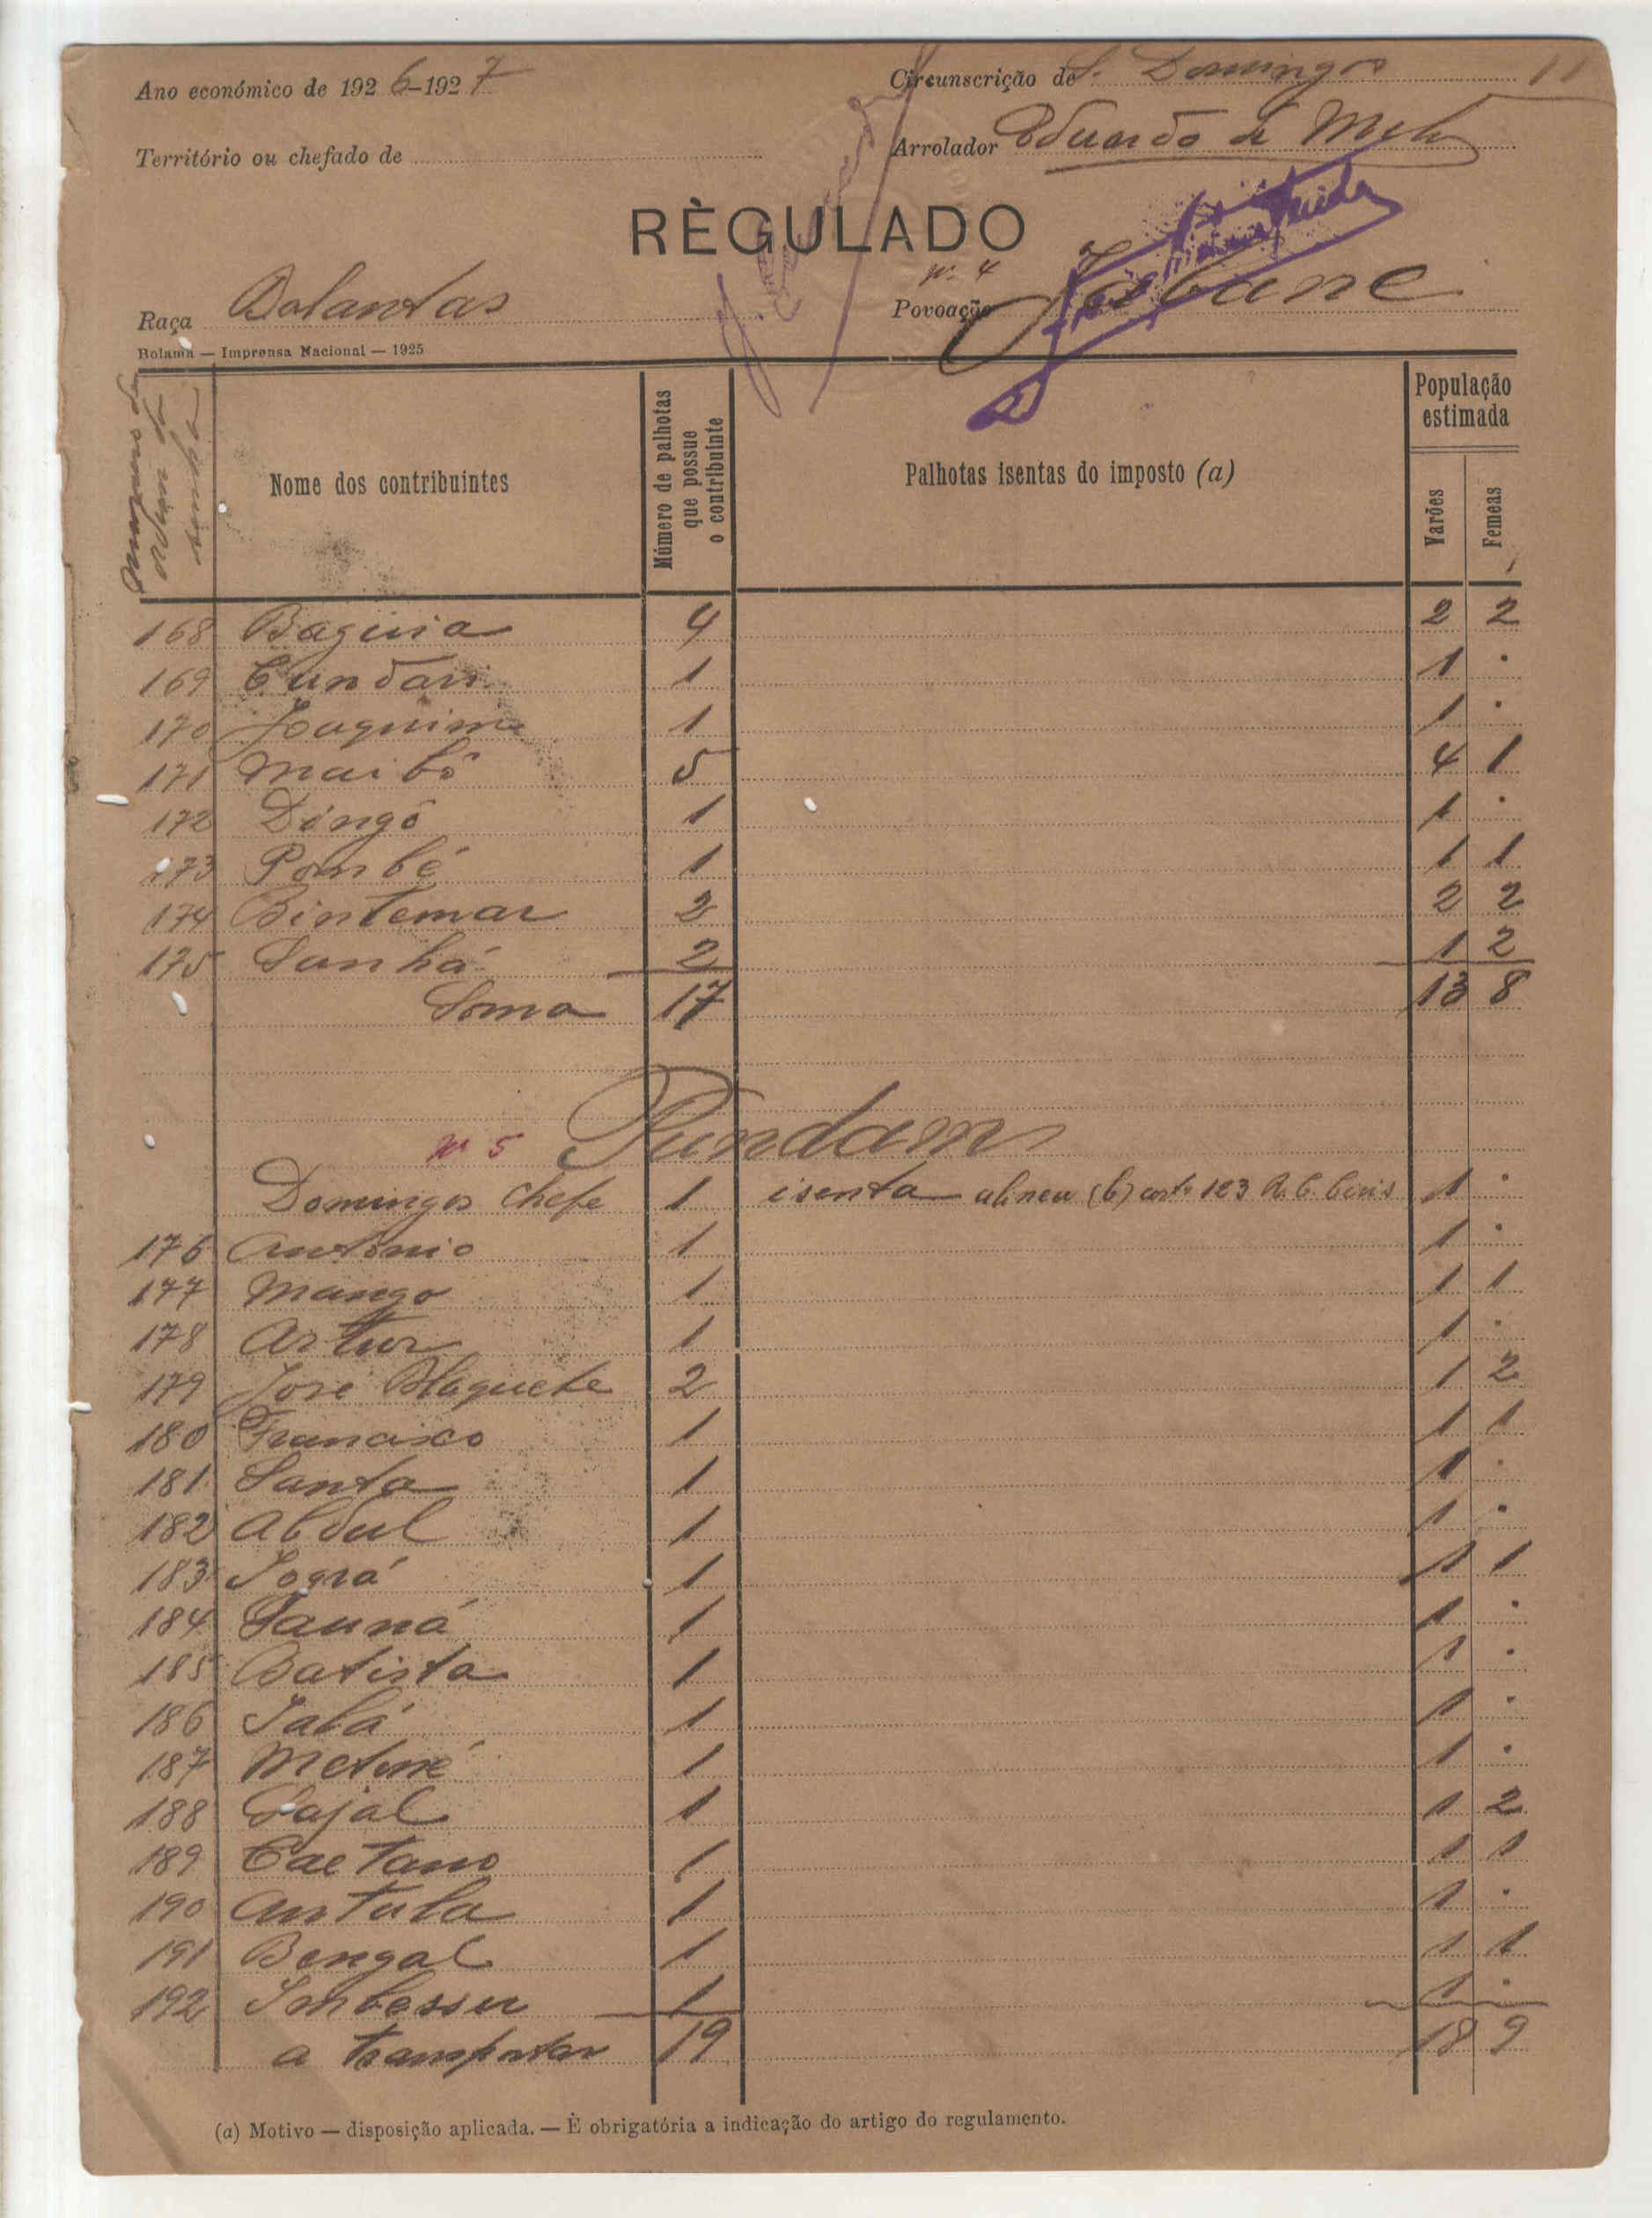 Ano económico de 1926-1927
Circunscrição de S. Domingos 11
Território ou chefado de
Arrolador Eduardo de Melo
RÈGULADO
nº 4
Raça Balantas
Povoação Jobane
Bolama — Imprensa Nacional — 1925
Nome dos contribuintes
Número de palhotas que possue o contribuinte
Palhotas isentas do imposto (a)
População estimada
Varões
Femeas
168 Baguia 4 2 2
169 Cundan 1 1 .
170 Joaquim 1 1 .
171 Maibô 5 4 1
172 Dingó 1 1 .
173 Pombé 1 1 1
174 Bintemar 2 2 2
175 Sanhá 2 1 2
Soma 17 13 8
nº 5 Pundam
Domingos chefe 1 isenta alinea (b) artº 123 1 .
176 Antonio 1 1 .
177 Mango 1 1 1
178 Artur 1 1 .
179 José Blaquete 2 1 2
180 Francisco 1 1 1
181 Santa 1 1 .
182 Abdul 1 1 .
183 Jográ 1 1 1
184 Jauná 1 1 .
185 Batista 1 1 .
186 Jalá 1 1 .
187 1 1 .
188 Sajal 1 1 2
189 Caetano 1 1 1
190 Antula 1 1 .
191 Bengal 1 1 1
192 Imbessu 1 1 .
a transportar 19 18 9
(a) Motivo — disposição aplicada. — È obrigatória a indicação do artigo do regulamento.